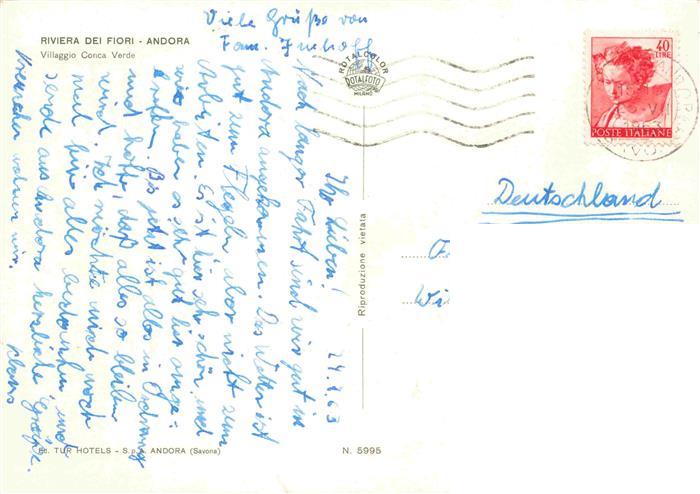 RIVIERA DEI FIORI - ANDORA
Villaggio Conca Verde
Viele Grüße von
Fam.
24.7.63
Ihr Lieben!
Nach langer Fahrt sind wir gut in
Andora angekommen. Das Wetter ist
gut zum Flegeln aber nicht zum
Arbeiten. Es ist hier sehr schön, und
wir haben es sehr gut hier ange-
troffen. Bis jetzt ist alles in Ordnung
und hoffe, daß alles so bleiben
wird. Ich möchte mich noch
mal für alles bedanken und
sende aus Andora herzliche Grüße.
Klaus
wohnen wir.
ROTALCOLOR
ROTALFOTO
MILANO
40
LIRE
POSTE ITALIANE
Deutschland
Wi
Riproduzione vietata
Ed. TUR HOTELS - S.p.A. ANDORA (Savona)
N. 5995